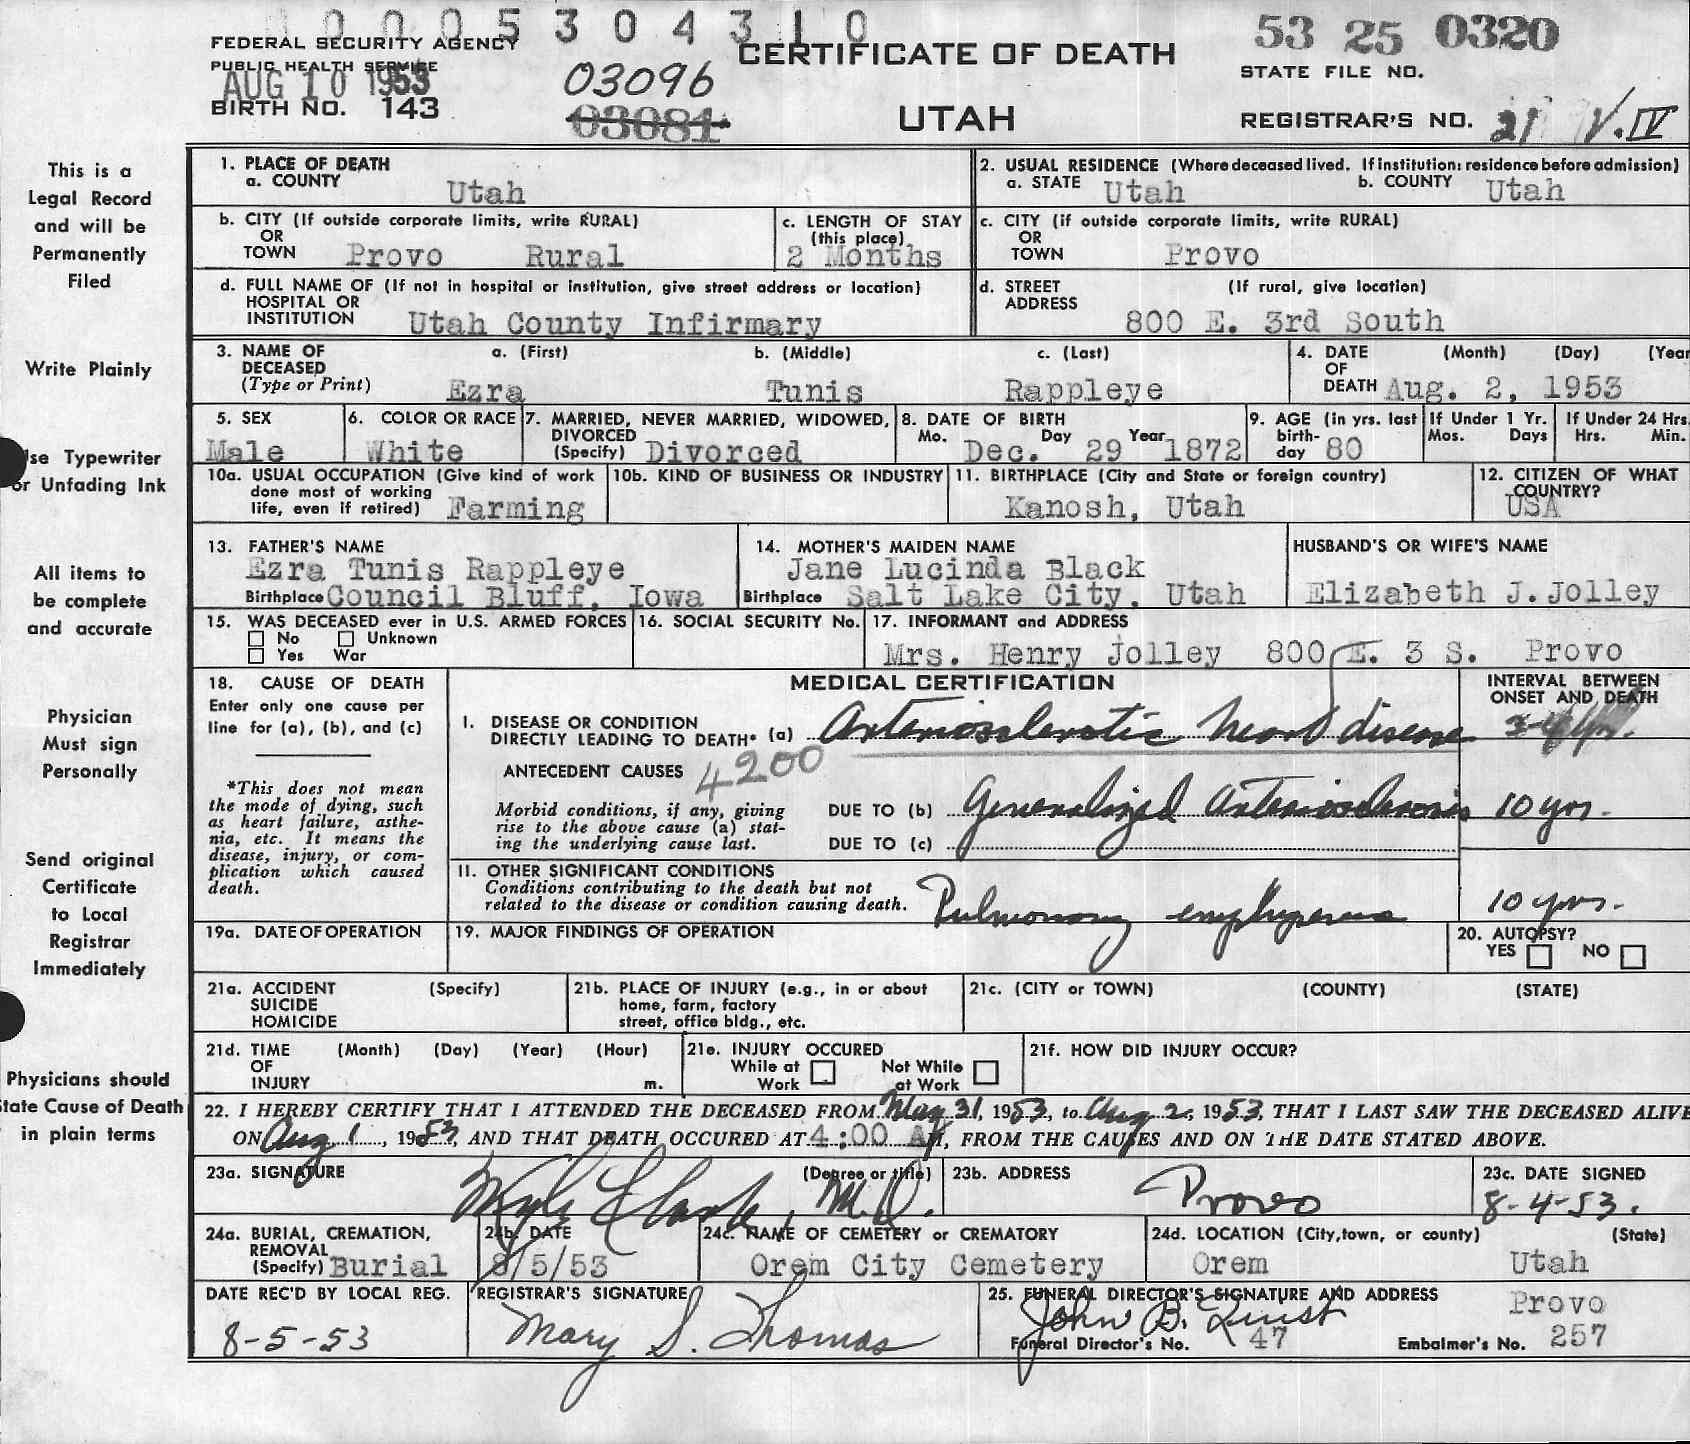 0 0 0 5 3 0 4 3 1 0
FEDERAL SECURITY AGENCY
PUBLIC HEALTH SERVICE
AUG 10 1953
BIRTH NO. 143
03096
03081
CERTIFICATE OF DEATH
UTAH
53 25 0320
STATE FILE NO.
REGISTRAR'S NO. 21 V. IV
This is a
Legal Record
and will be
Permanently
Filed
Write Plainly
se Typewriter
or Unfading Ink
All items to
be complete
and accurate
Physician
Must sign
Personally
Send original
Certificate
to Local
Registrar
Immediately
Physicians should
tate Cause of Death
in plain terms
1. PLACE OF DEATH
a. COUNTY Utah
2. USUAL RESIDENCE (Where deceased lived. If institution: residence before admission)
a. STATE Utah b. COUNTY Utah
b. CITY (If outside corporate limits, write RURAL)
OR
TOWN Provo Rural
c. LENGTH OF STAY
(this place)
2 Months
c. CITY (if outside corporate limits, write RURAL)
OR
TOWN Provo
d. FULL NAME OF (If not in hospital or institution, give street address or location)
HOSPITAL OR
INSTITUTION Utah County Infirmary
d. STREET (If rural, give location)
ADDRESS
800 E. 3rd South
3. NAME OF a. (First) b. (Middle) c. (Last)
DECEASED
(Type or Print) Ezra Tunis Rappleye
4. DATE (Month) (Day) (Year
OF
DEATH Aug. 2, 1953
5. SEX
Male
6. COLOR OR RACE
White
7. MARRIED, NEVER MARRIED, WIDOWED,
DIVORCED
(Specify) Divorced
8. DATE OF BIRTH
Mo. Day Year
Dec. 29 1872
9. AGE (in yrs. last
birth-
day 80
If Under 1 Yr.
Mos. Days
If Under 24 Hrs.
Hrs. Min.
10a. USUAL OCCUPATION (Give kind of work
done most of working
life, even if retired) Farming
10b. KIND OF BUSINESS OR INDUSTRY
11. BIRTHPLACE (City and State or foreign country)
Kanosh, Utah
12. CITIZEN OF WHAT
COUNTRY?
USA
13. FATHER'S NAME
Ezra Tunis Rappleye
Birthplace Council Bluff, Iowa
14. MOTHER'S MAIDEN NAME
Jane Lucinda Black
Birthplace Salt Lake City, Utah
HUSBAND'S OR WIFE'S NAME
Elizabeth J. Jolley
15. WAS DECEASED ever in U.S. ARMED FORCES
No Unknown
Yes War
16. SOCIAL SECURITY No.
17. INFORMANT and ADDRESS
Mrs. Henry Jolley 800 E. 3 S. Provo
18. CAUSE OF DEATH
Enter only one cause per
line for (a), (b), and (c)
*This does not mean
the mode of dying, such
as heart failure, asthe-
nia, etc. It means the
disease, injury, or com-
plication which caused
death.
MEDICAL CERTIFICATION
INTERVAL BETWEEN
ONSET AND DEATH
I. DISEASE OR CONDITION
DIRECTLY LEADING TO DEATH* (a) Arteriosclerotic heart disease
ANTECEDENT CAUSES 4200
Morbid conditions, if any, giving
rise to the above cause (a) stat-
ing the underlying cause last.
DUE TO (b) Generalized Arteriosclerosis 10 yrs.
DUE TO (c)
II. OTHER SIGNIFICANT CONDITIONS
Conditions contributing to the death but not
related to the disease or condition causing death.
Pulmonary emphysema 10 yrs.
19a. DATE OF OPERATION
19. MAJOR FINDINGS OF OPERATION
20. AUTOPSY?
YES NO
21a. ACCIDENT (Specify)
SUICIDE
HOMICIDE
21b. PLACE OF INJURY (e.g., in or about
home, farm, factory
street, office bldg., etc.
21c. (CITY or TOWN) (COUNTY) (STATE)
21d. TIME (Month) (Day) (Year) (Hour)
OF
INJURY m.
21e. INJURY OCCURED
While at Not While
Work at Work
21f. HOW DID INJURY OCCUR?
22. I HEREBY CERTIFY THAT I ATTENDED THE DECEASED FROM May 31, 1953, to Aug 2, 1953, THAT I LAST SAW THE DECEASED ALIVE
ON Aug 1, 1953, AND THAT DEATH OCCURED AT 4:00 AM, FROM THE CAUSES AND ON THE DATE STATED ABOVE.
23a. SIGNATURE (Degree or title)
Clark, M.D.
23b. ADDRESS
Provo
23c. DATE SIGNED
8-4-53.
24a. BURIAL, CREMATION,
REMOVAL
(Specify) Burial
24b. DATE
8/5/53
24c. NAME OF CEMETERY or CREMATORY
Orem City Cemetery
24d. LOCATION (City, town, or county) (State)
Orem Utah
DATE REC'D BY LOCAL REG.
8-5-53
REGISTRAR'S SIGNATURE
Mary S. Thomas
25. FUNERAL DIRECTOR'S SIGNATURE AND ADDRESS Provo
John B.
Funeral Director's No. 47 Embalmer's No. 257